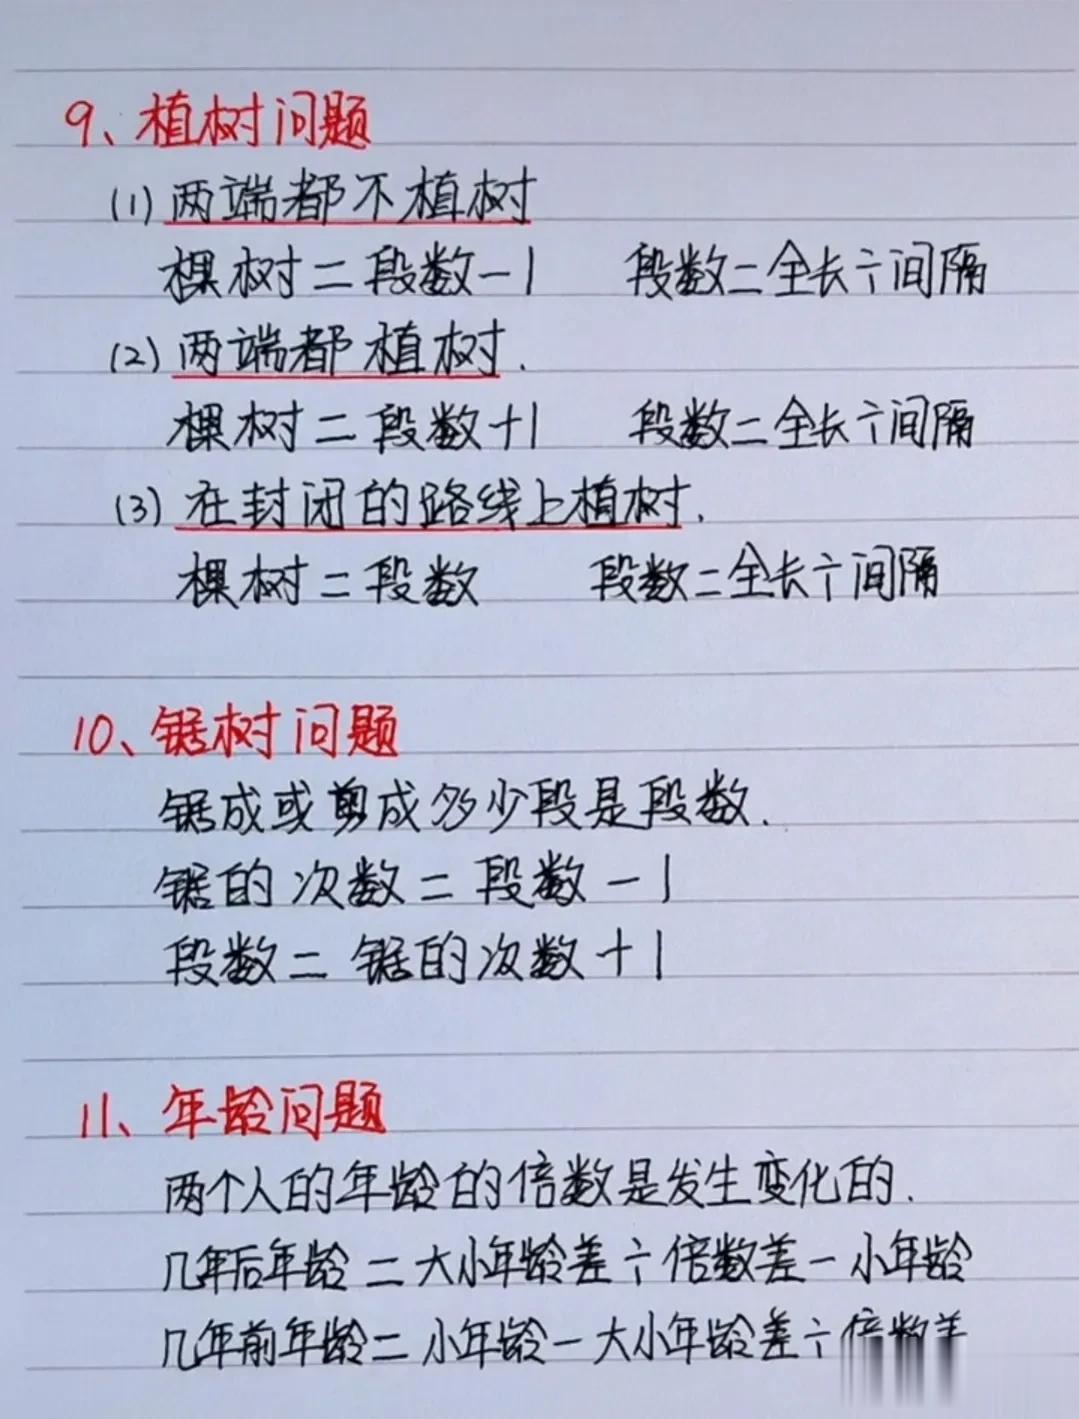 9、植树问题
(1) 两端都不植树
棵树=段数-1 段数=全长÷间隔
(2) 两端都植树.
棵树=段数+1 段数=全长÷间隔
(3) 在封闭的路线上植树.
棵树=段数 段数=全长÷间隔
10、锯树问题
锯成或剪成多少段是段数.
锯的次数=段数-1
段数=锯的次数+1
11、年龄问题
两个人的年龄的倍数是发生变化的.
几年后年龄=大小年龄差÷倍数差-小年龄
几年前年龄=小年龄-大小年龄差÷倍数差